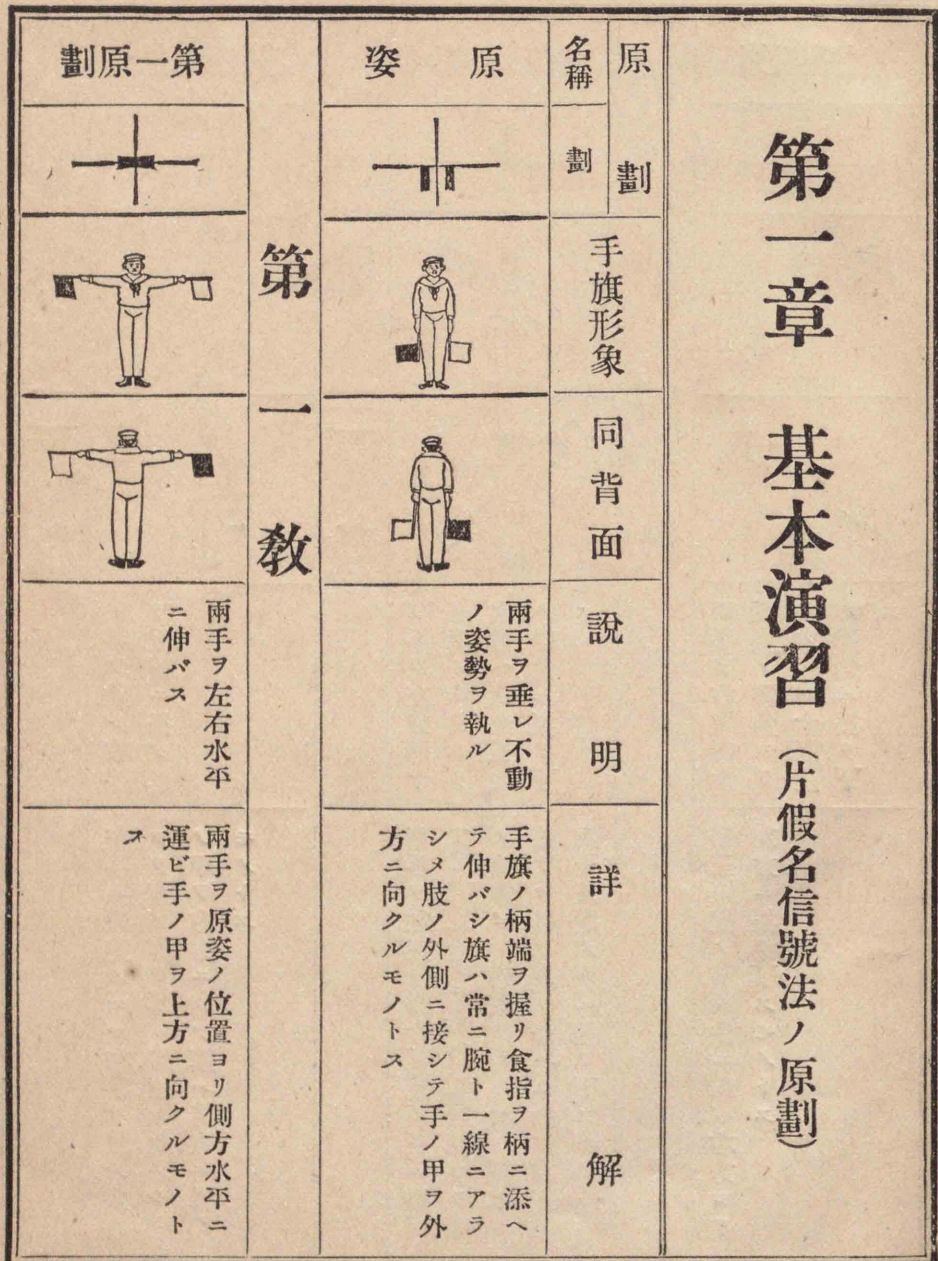 第一章　基本演習（片假名信號法ノ原劃）
原劃
名稱
劃
手旗形象
同背面
說明
詳解
原姿
兩手ヲ垂レ不動
ノ姿勢ヲ執ル
手旗ノ柄端ヲ握リ食指ヲ柄ニ添ヘ
テ伸バシ旗ハ常ニ腕ト一線ニアラ
シメ肢ノ外側ニ接シテ手ノ甲ヲ外
方ニ向クルモノトス
第一教
第一原劃
兩手ヲ左右水平
ニ伸バス
兩手ヲ原姿ノ位置ヨリ側方水平ニ
運ビ手ノ甲ヲ上方ニ向クルモノト
ス